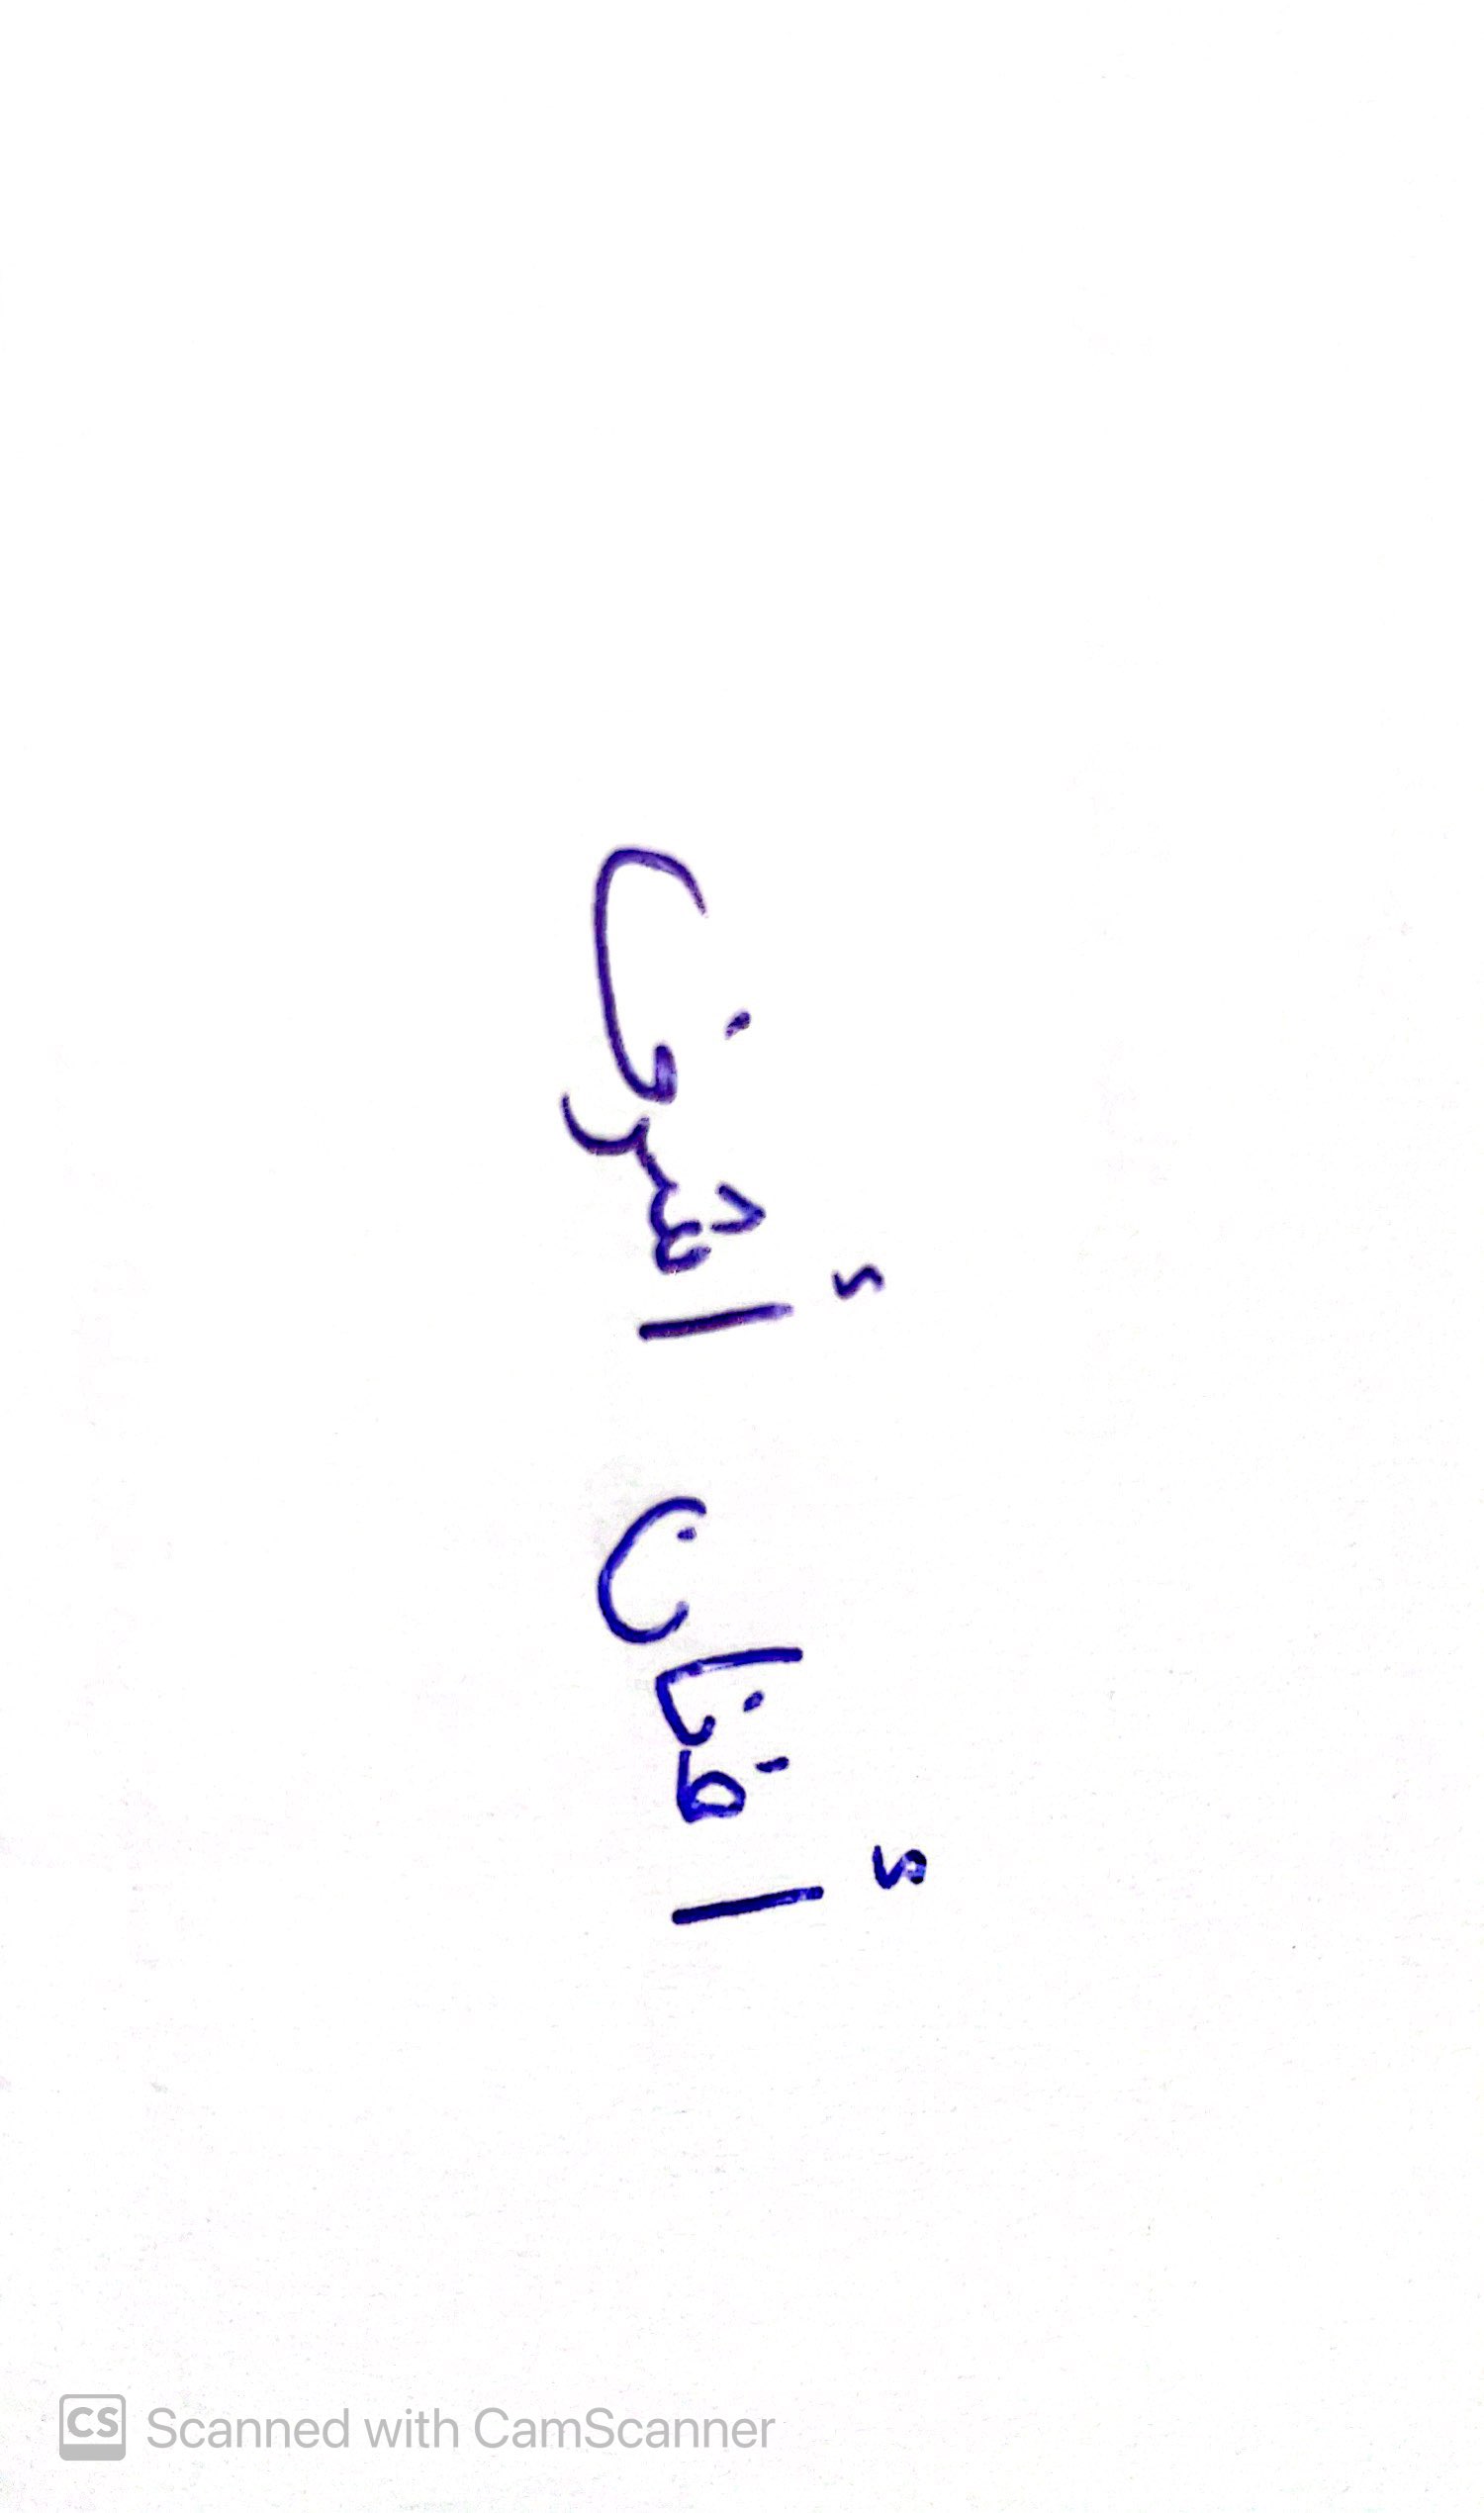 أفنان أشرف
CS Scanned with CamScanner